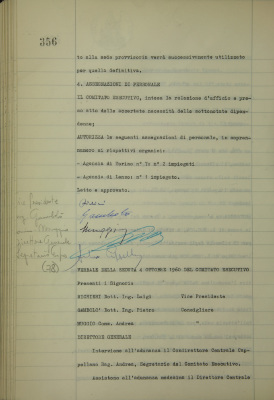 356
to alla sede provvisoria verrà successivamente utilizzato
per quella definitiva.
4. ASSEGNAZIONI DI PERSONALE
IL COMITATO ESECUTIVO, intesa la relazione d'ufficio e pre-
so atto delle accertate necessità delle sottonotate dipen-
denze;
AUTORIZZA le seguenti assegnazioni di personale, in sopran-
numero ai rispettivi organici:
- Agenzia di Torino n° 14 n° 2 impiegati
- Agenzia di n° 1 impiegato.
Letto e approvato.
VERBALE DELLA SEDUTA 4 OTTOBRE 1960 DEL COMITATO ESECUTIVO
Presenti i Signori:
Dott. Ing. Luigi Vice Presidente
Dott. Ing. Pietro Consigliere
Comm. Andrea "
DIRETTORE GENERALE
Interviene all'adunanza il Condirettore Centrale Cap-
pellano Rag. Andrea, Segretario del Comitato Esecutivo.
Assistono all'adunanza medesima il Direttore Centrale